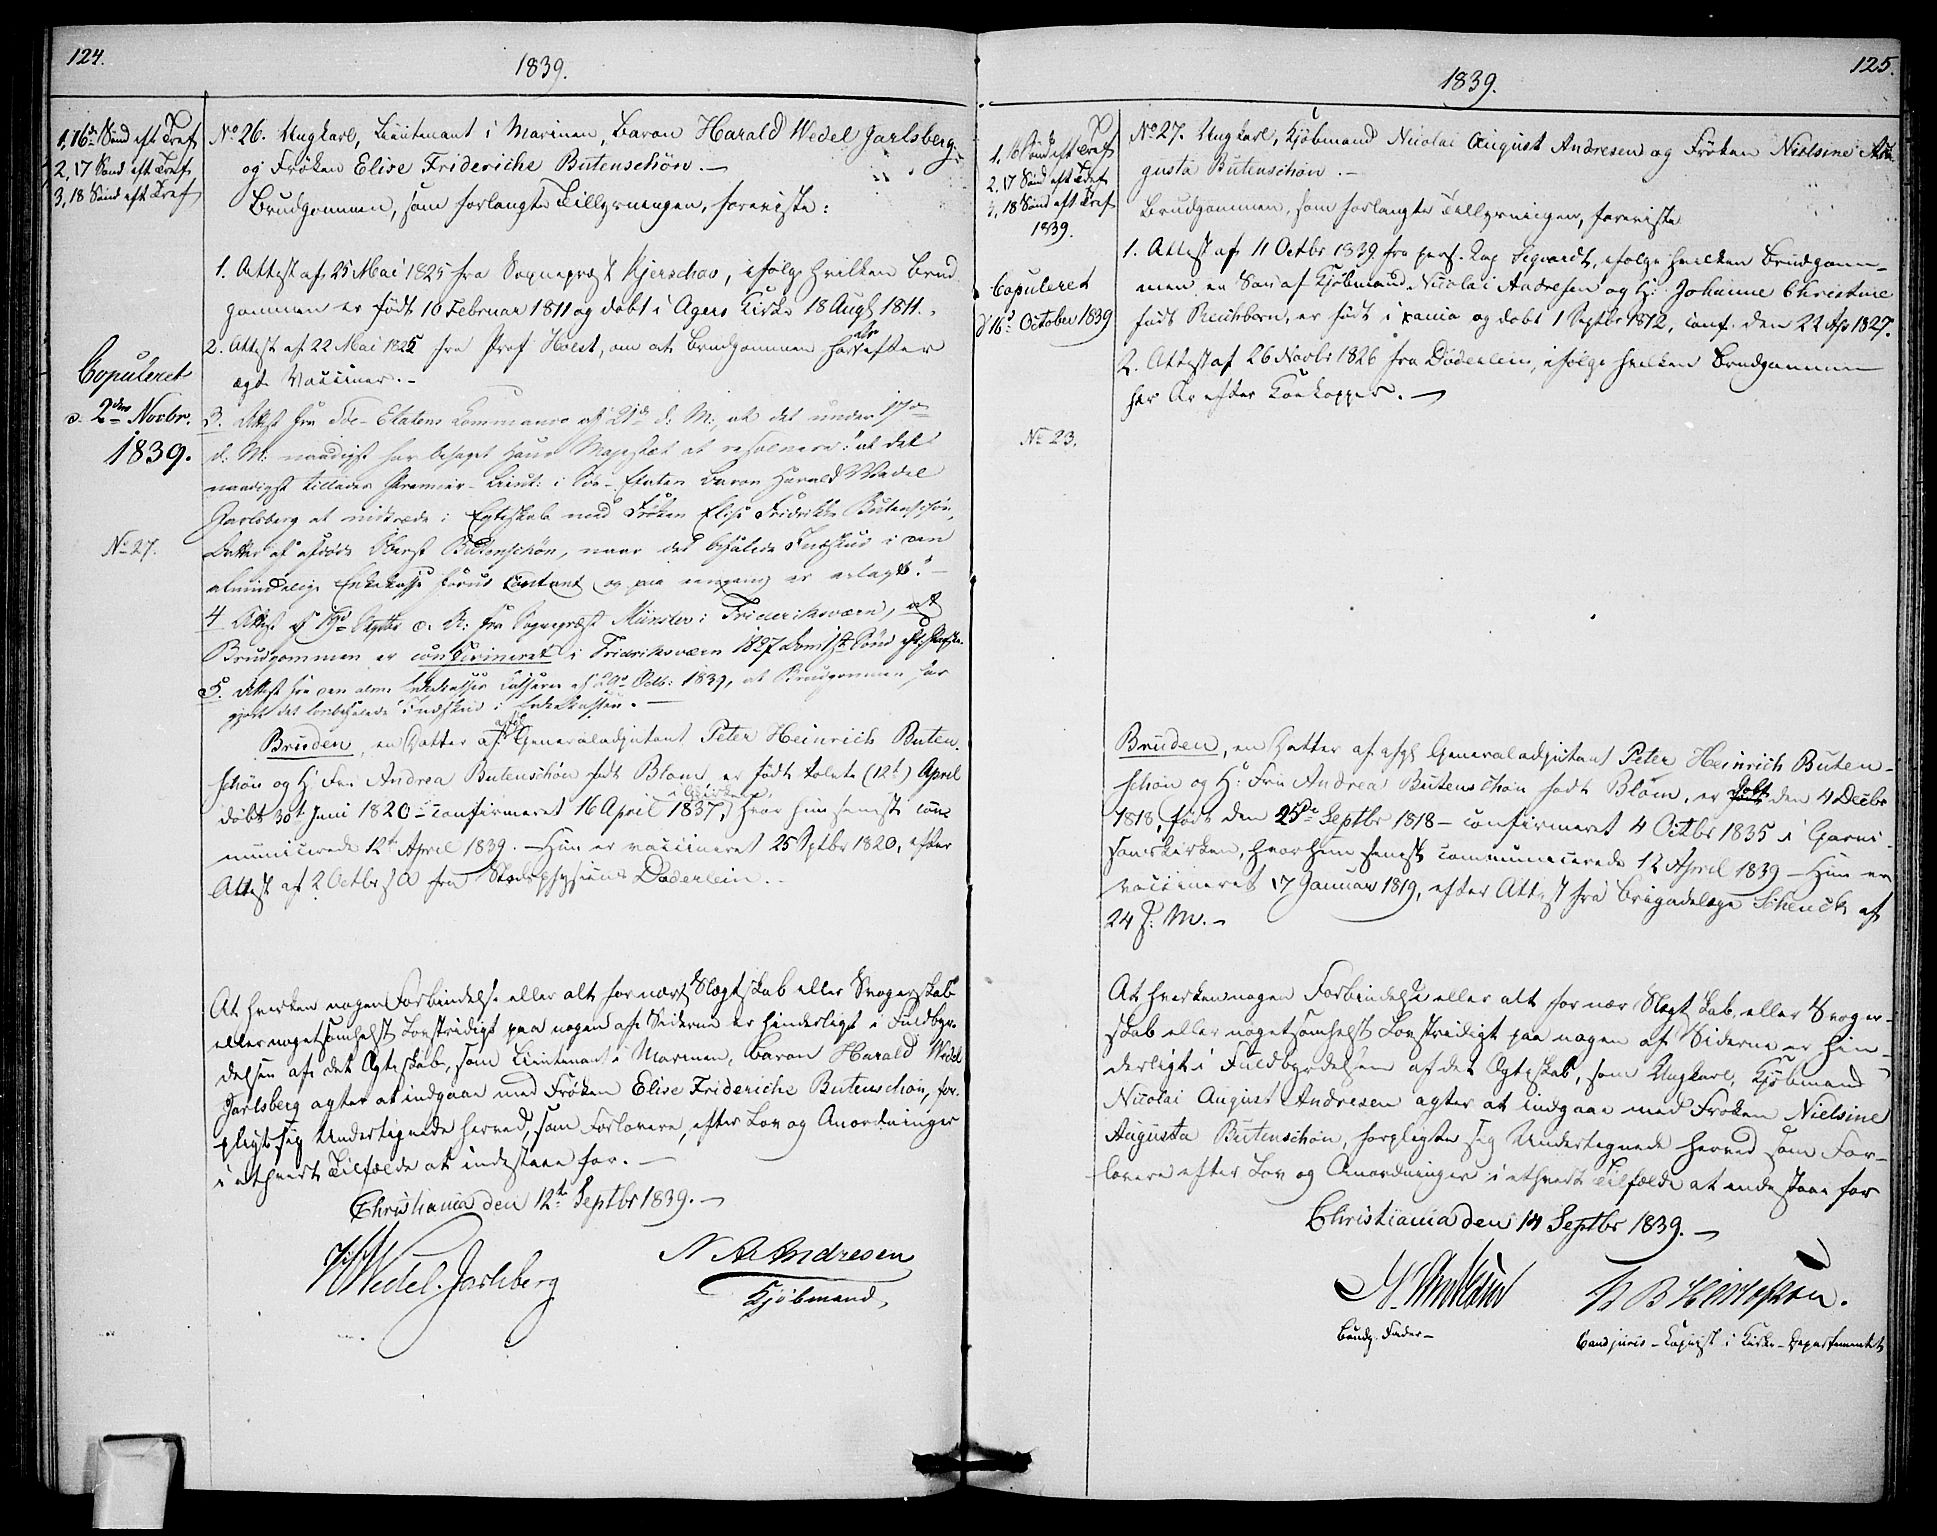 124.
1839.
1, 16de Sønd eft Tref
2, 17 Sønd eft Tref
3, 18 Sønd eft Tref
Copuleret
d. 2den Novbr.
1839.
No 27.
No 26. Ungkarl, Lieutenant i Marinen, Baron Harald Wedel Jarlsberg
og Frøken Elise Frideriche Butenschøn. —
Brudgommen, som forlangte Tillysningen, foreviste:
1. Attest af 25 Mai 1825 fra Sognepræst Kjerschow, ifølge hvilken Brud
gommen er født 10 Februar 1811 og døbt i Agers Kirke 18 Augt 1811.
2. Attest af 22 Mai 1825 fra Prof Holst, om at Brudgommen har Ar efter
ægte Vacciner. —
3. Attest fra Søe-Etatens Commando af 21de d: M:, at det under 17de
d: M: naadigst har behaget Hans Majestæt at resolvere: "at det
naadigst tillades Premier-Lieut: i Søe-Etaten Baron Harald Wedel
Jarlsberg at indtræde i Egteskab med Frøken Elise Fridrikke Butenschøn,
Datter af afdøde Oberst Butenschøn, naar det befalede Indskud i den
almindelige Enkekasse forud contant og paa eengang er erlagt." —
4 Attest af Septbr d. A: fra Sognepræst Münster i Frideriksværn, at
Brudgommen er confirmeret i Fridriksværn 1827 Dom 1ste Sønd eft: Paaske.
5. Attest fra den alm: Enkekasses Casserer af Octb: 1839, at Brudgommen har
gjort det lovbefalede Indskud i Enkekassen. —
Bruden, en Datter af afgl Generaladjutant Peter Heinrich Buten-
schøn og H: Fru Andrea Butenschøn født Blom, er født tolvte (12te) April
døbt 30te Juni 1820 — confirmeret 16 April 1837, hvor hun senest com-
municerede 12te April 1839. — Hun er vaccineret 25 Sptbr 1820, efter
Attest af 2 Octbr s A fra Stadsphysicus Døderlein. —
At hverken nogen Forbindelse eller alt for nært Slægtskab eller Svogerskab
eller nogetsomhelst Lovstridigt paa nogen af Siderne er hinderligt i Fuldbyr-
delsen af det Egteskab, som Lieutenant i Marinen, Baron Harald Wedel
Jarlsberg agter at indgaae med Frøken Elise Frideriche Butenschøn, for-
pligte sig Undertegnede herved, som Forlovere, efter Lov og Anordninger
i ethvert Tilfælde at indestaae for. —
Christiania den 12te Septbr 1839. —
Wedel-Jarlsberg
N A Andresen
Kjøbmand,
125.
1839.
1, 16 Sønd eft Tref
2, 17 Sønd eft Tref
3, 18 Sønd eft Tref
1839.
Copuleret
d 16de October 1839
No 23.
No 27. Ungkarl, Kjøbmand Nicolai August Andresen og Frøken Nielsine Au-
gusta Butenschøn. —
Brudgommen, som forlangte Tillysningen, foreviste
1. Attest af 11 Octbr 1839 fra pers. Kap Sigvardt, ifølge hvilken Brudgom-
men en Søn af Kjøbmand Nicolai Andresen og H: Johanne Christine
født Reichborn, er født i xania og døbt 1 Septbr 1812, conf. den 22 Ap 1827.
2. Attest af 26 Novbr 1826 fra Døderlein, ifølge hvilken Brudgommen
har Ar efter Koekopper. —
Bruden, en Datter af afgl Generaladjutant Peter Heinrich Buten-
schøn og H: Fru Andrea Butenschøn født Blom, er døbt den 4 Decbr
1818, født den 25de Septbr 1818 — confirmeret 4 Octbr 1835 i Garni-
sonskirken, hvor hun senest communicerede 12 April 1839 — Hun er
vaccineret 17 Januar 1819, efter Attest fra Brigadelæge Schenck af
24 s. M. —
At hverken nogen Forbindelse eller alt for nær Slegtskab, eller Svoger-
skab eller nogetsomhelst Lovstridigt paa nogen af Siderne er hin-
derligt i Fuldbyrdelsen af det Egteskab, som Ungkarl, Kjøbmand
Nicolai August Andresen agter at indgaae med Frøken Nielsine
Augusta Butenschøn, forpligte sig Undertegnede herved som For-
lovere efter Lov og Anordninger i ethvert Tilfælde at indestaae for
Christiania den 14 Septbr 1839. —
N. Andresen
Brudg. Fader —
Cand juris — Copist i Kirke-Departementet